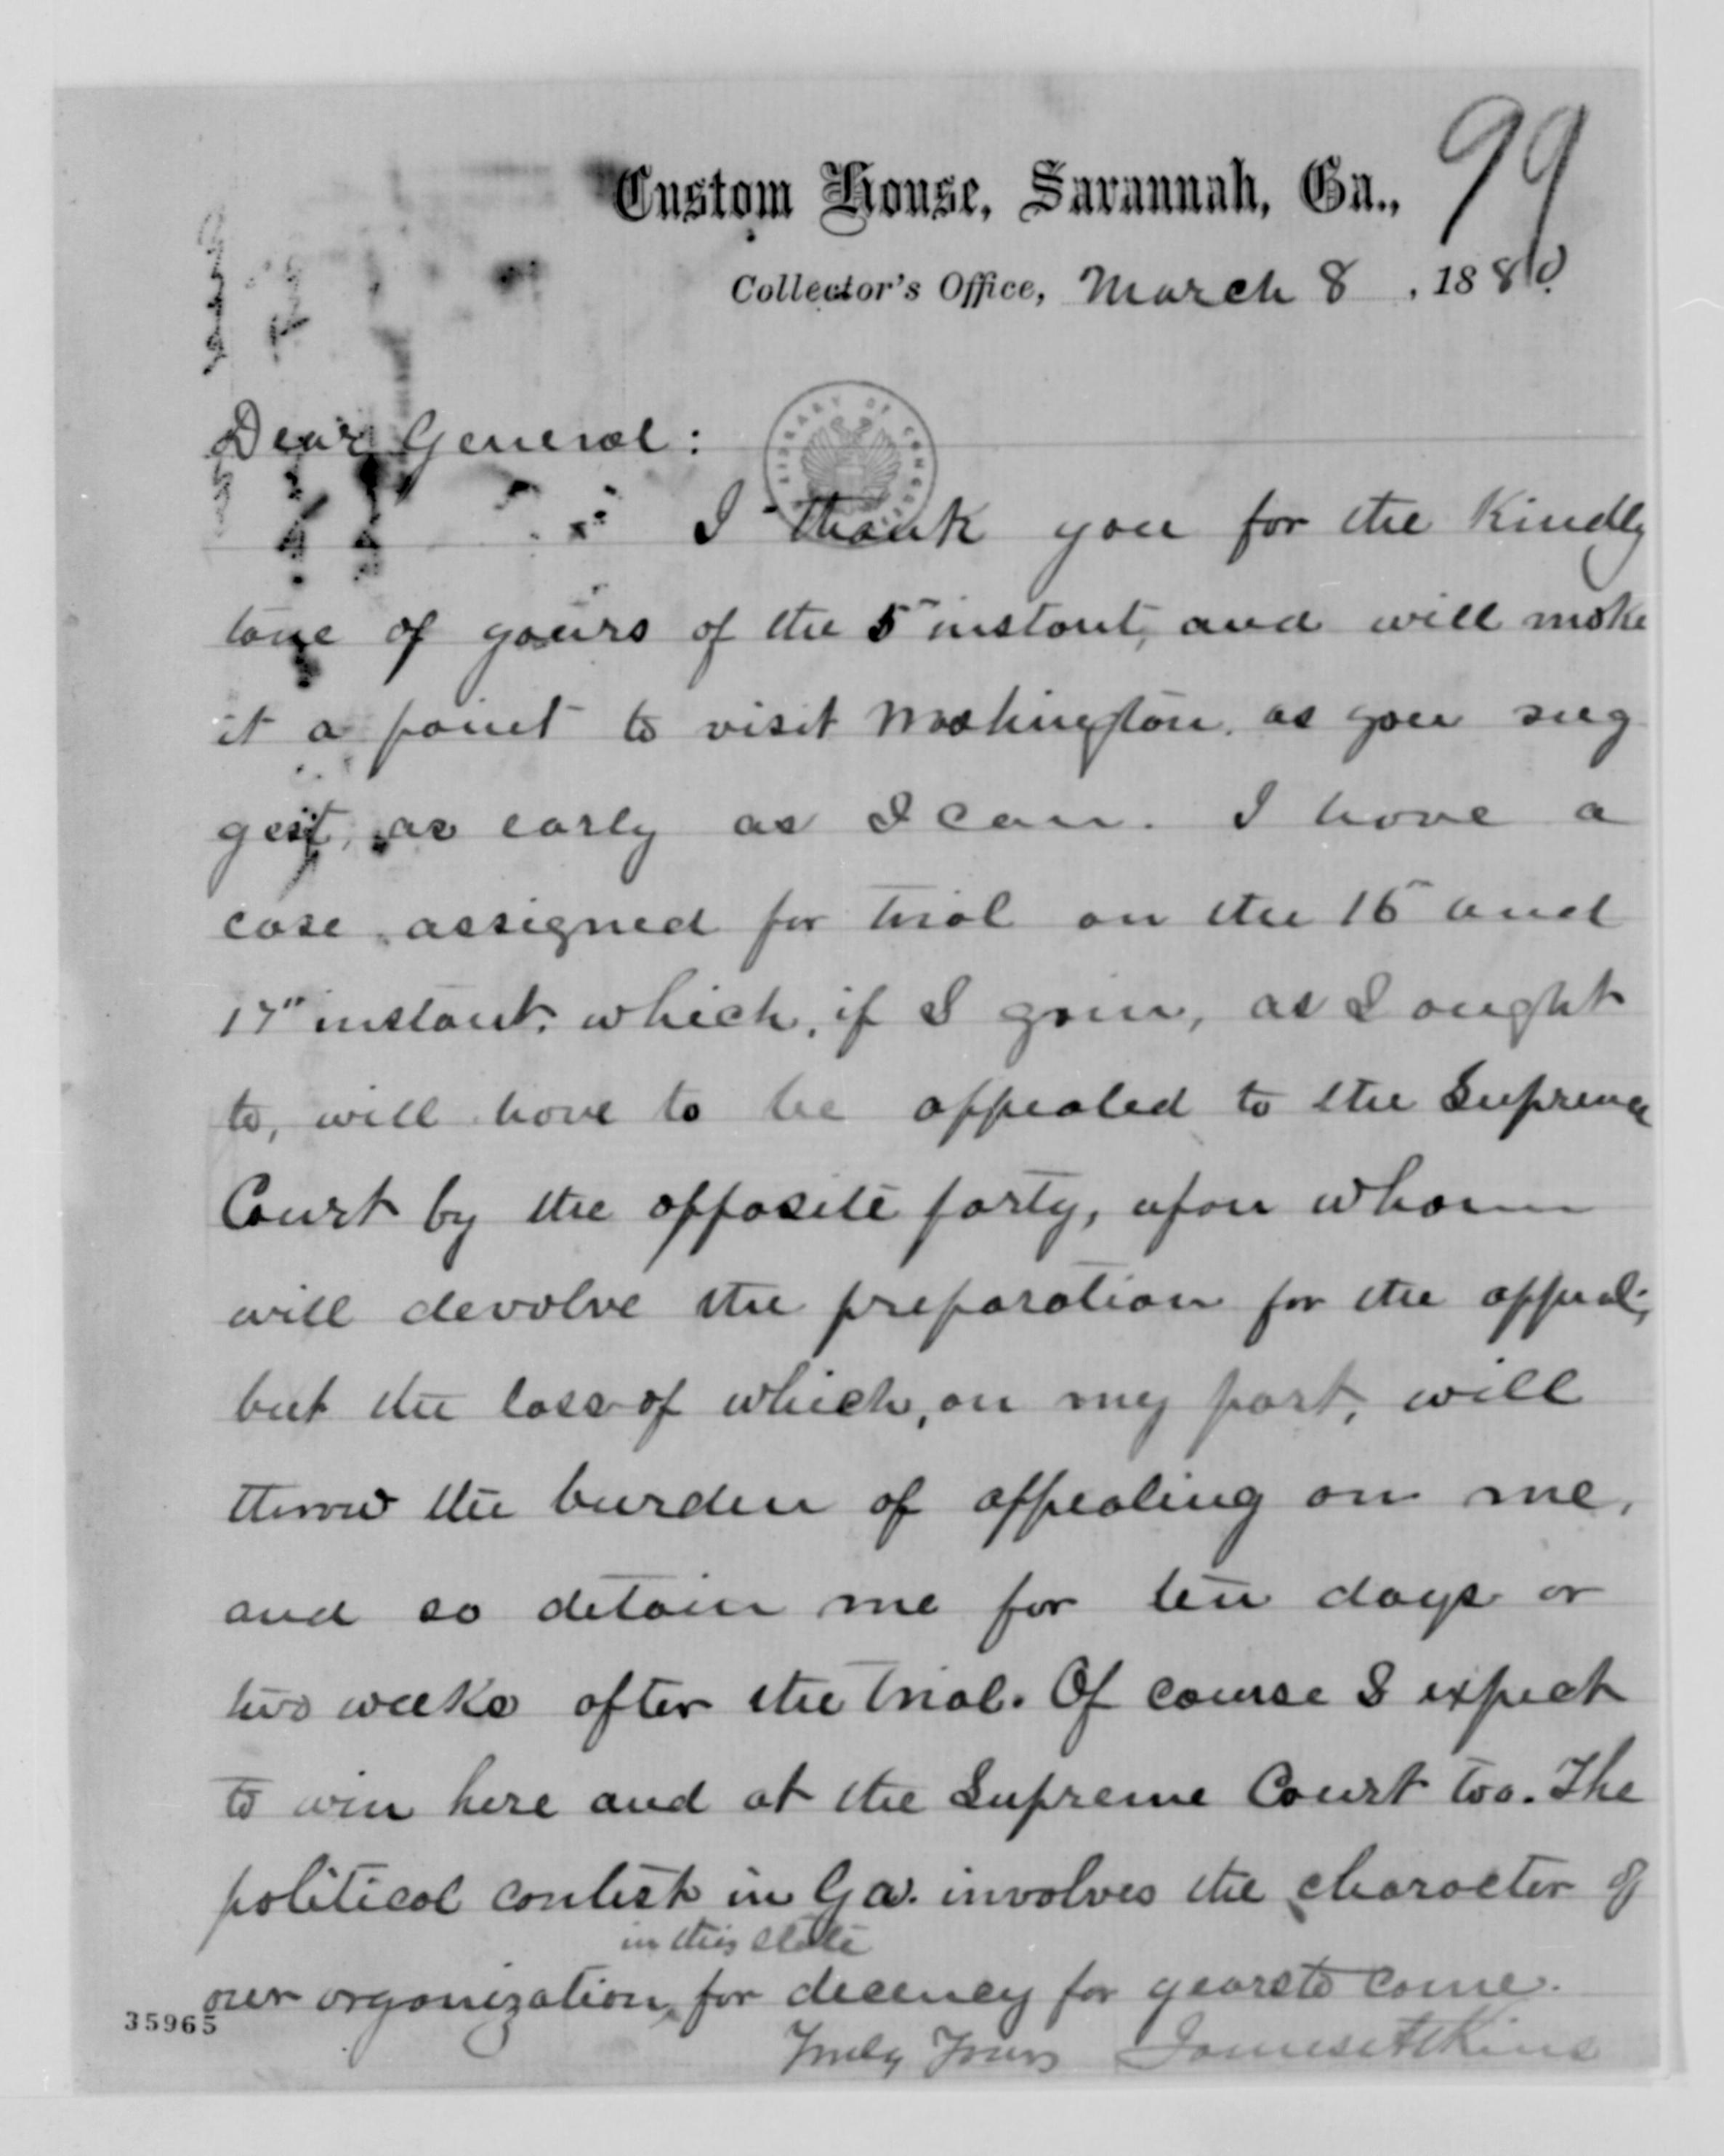 99
Custom House, Savannah, Ga.,
Collector's Office, March 8, 1880
LIBRARY OF CONGRESS
Dear General:
I thank you for the kindly
tone of yours of the 5" instant, and will make
it a point to visit Washington, as you sug
gest, as early as I can. I have a
case assigned for trial on the 15" and
17" instant, which, if I gain, as I ought
to, will have to be appealed to the Supreme
Court by the opposite party, upon whom
will devolve the preparation for the appeal;
but the loss of which, on my part, will
throw the burden of appealing on me,
and so detain me for ten days or
two weeks after the trial. Of course I expect
to win here and at the Supreme Court too. The
political contest in Ga. involves the character of
in this state
our organization, for decency for years to come.
Truly Yours James Atkins
35965